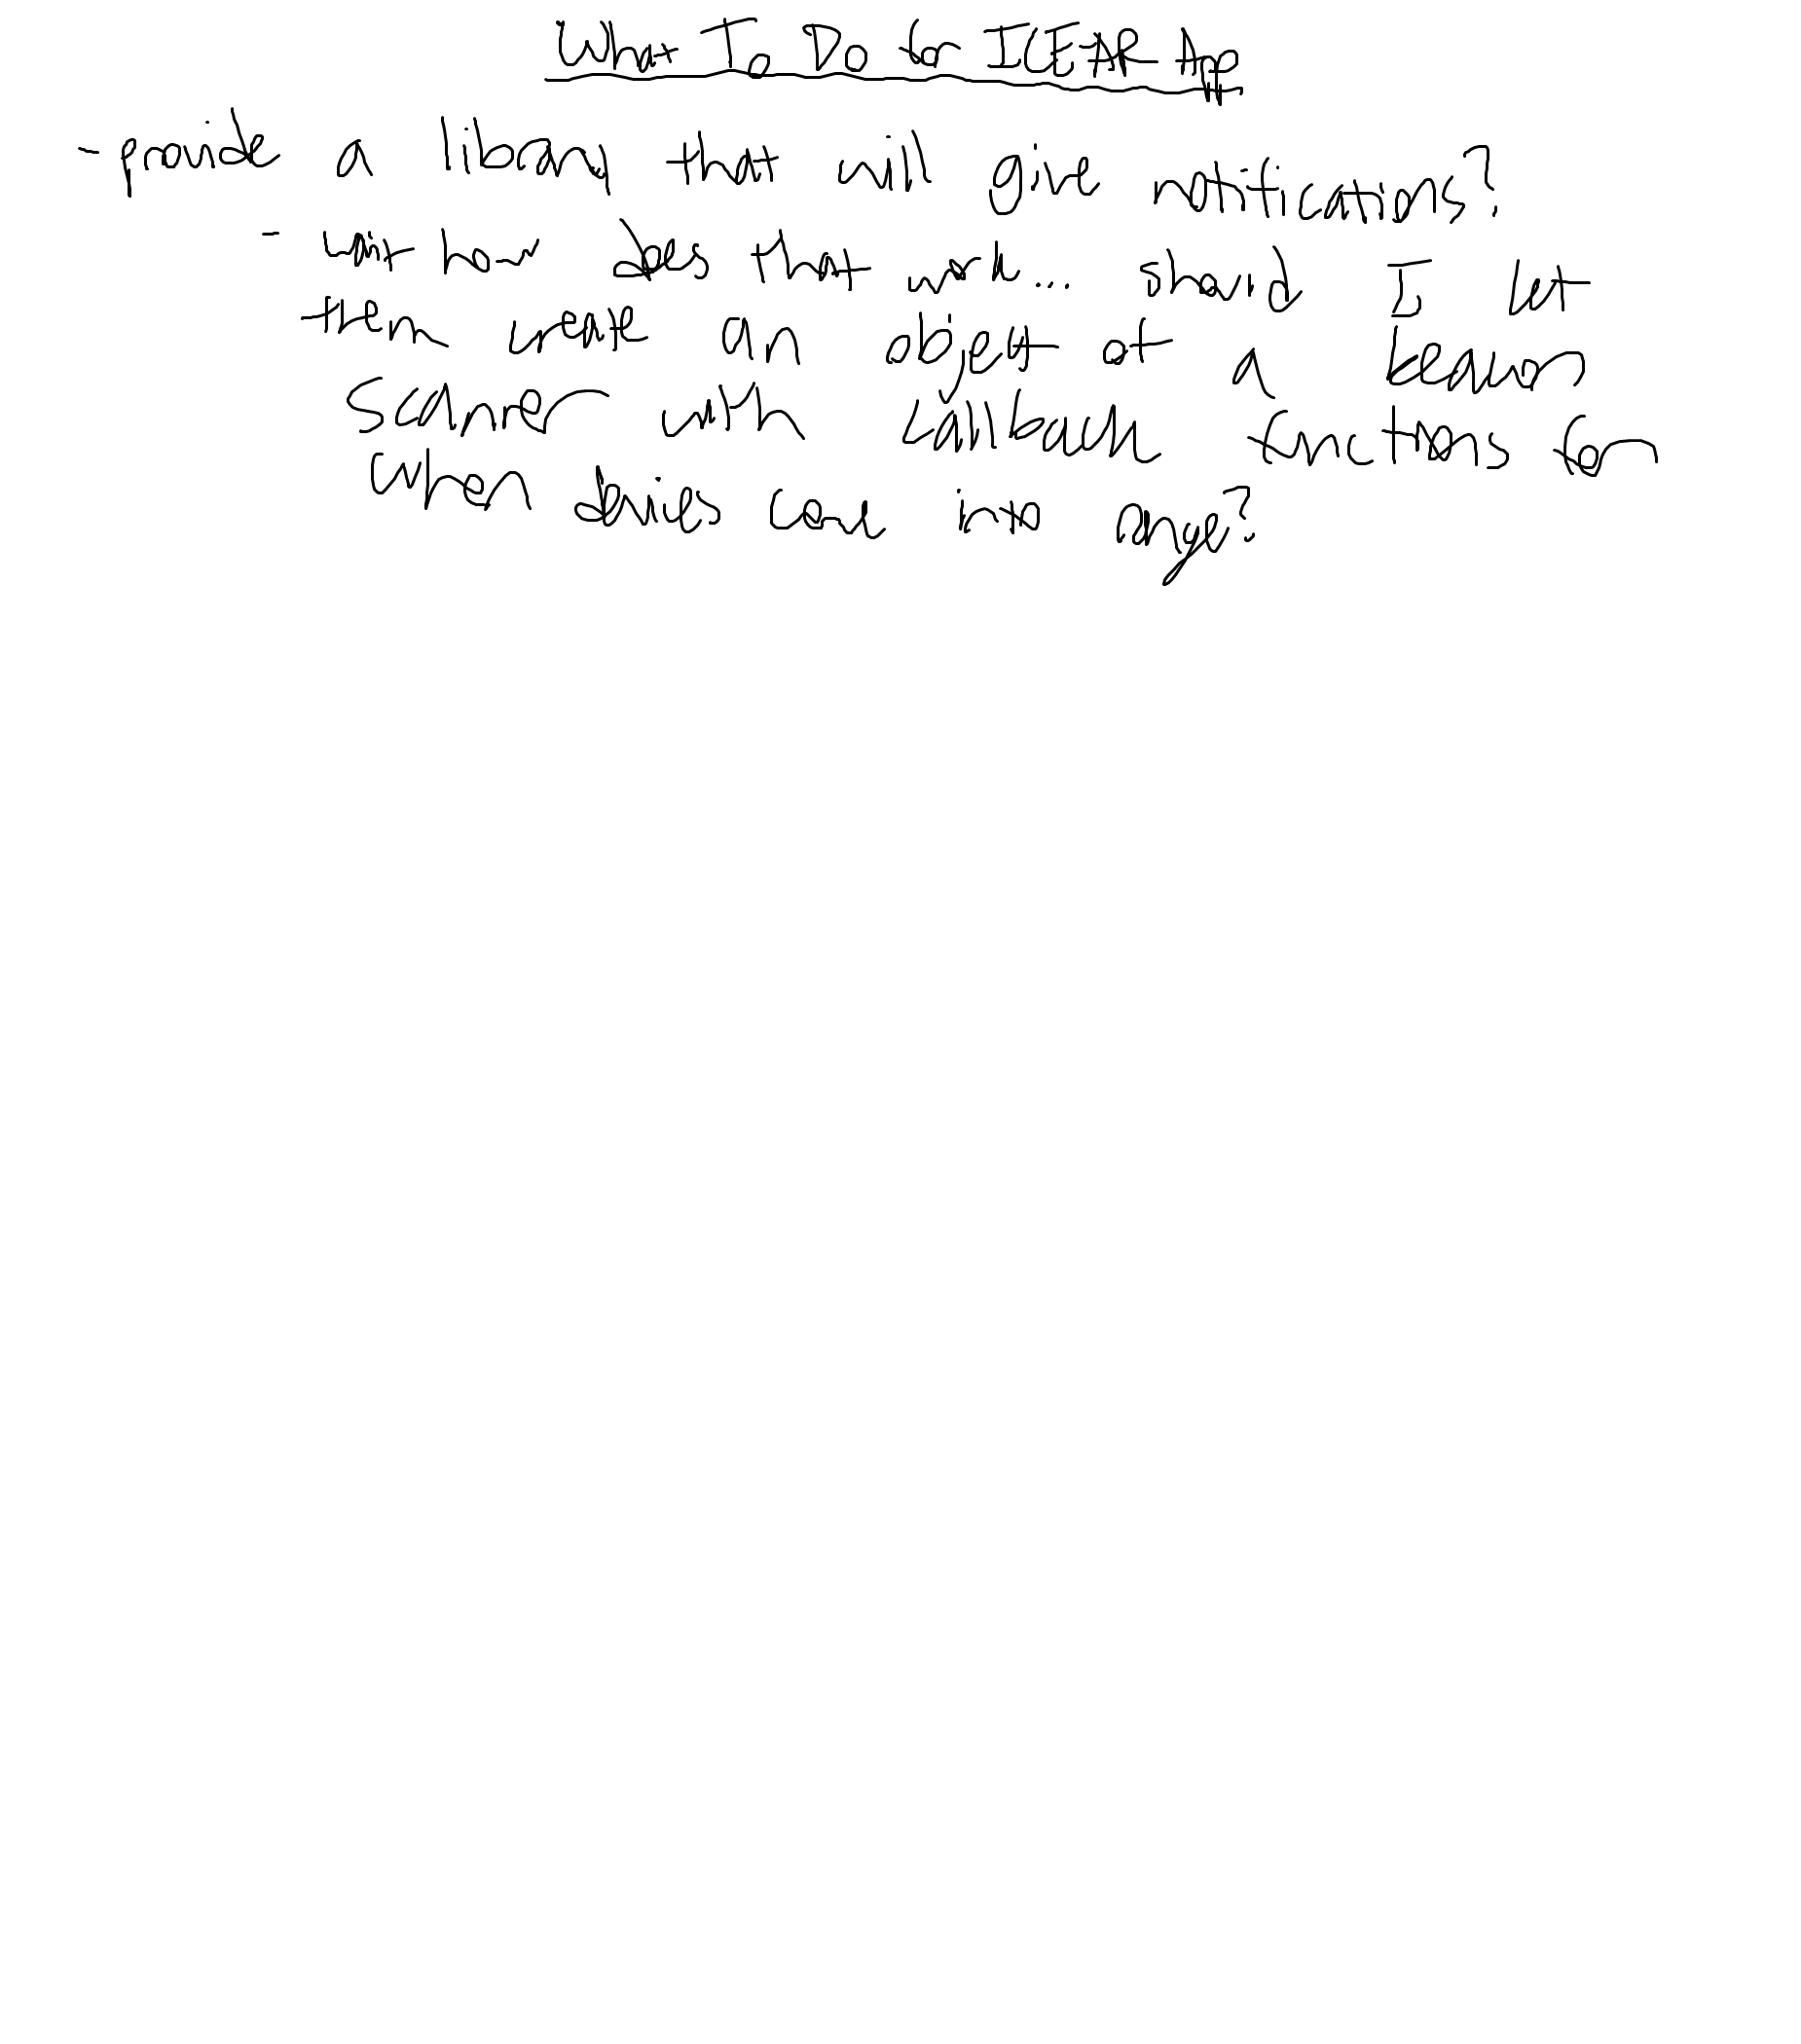 What To Do for ICEAR App
- provide a library that will give notifications?
- wait how does that work... should I let
them create an object of a beacons
scanner with callback functions for
when devices come into range?